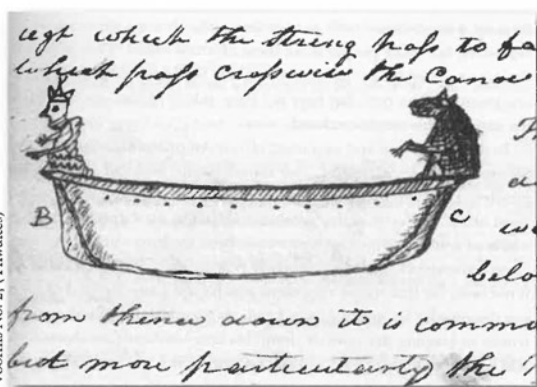 ugh which the streng pass to fa
which pass crosswise the Canoe
B
C
a
belo
from thence down it is commo
but more particularly the